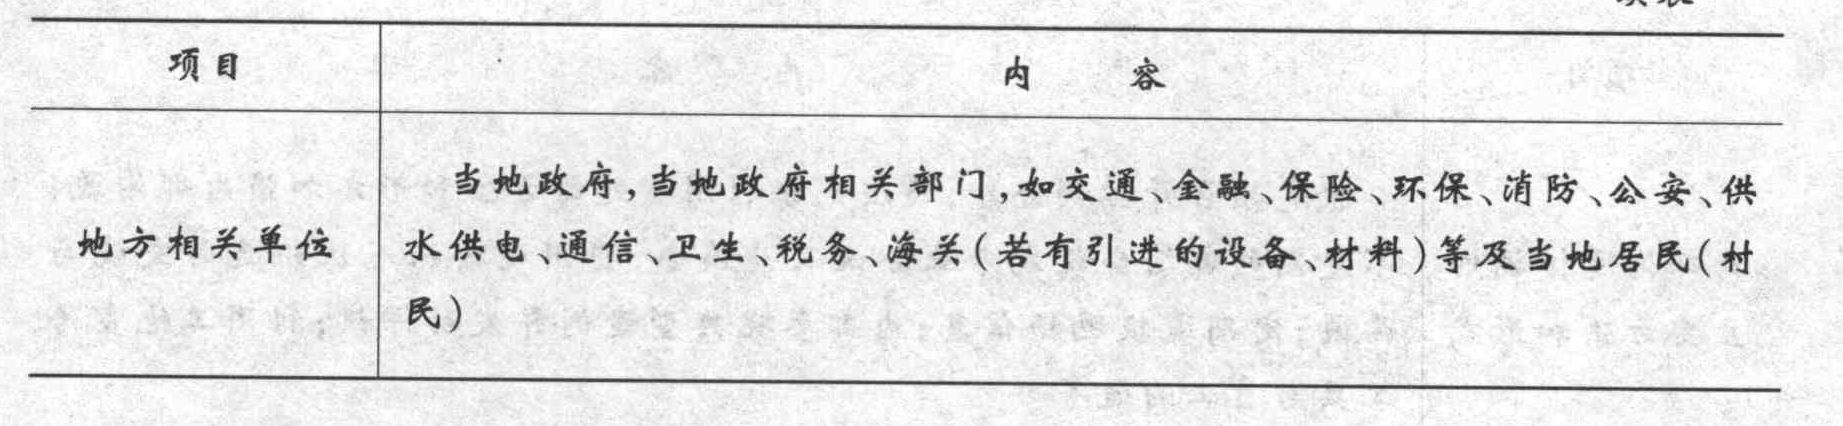 项目 内 容
当地政府,当地政府相关部门,如交通、金融、保险、环保、消防、公安、供
地方相关单位 水供电、通信、卫生、税务、海关(若有引进的设备、材料)等及当地居民(村
民)